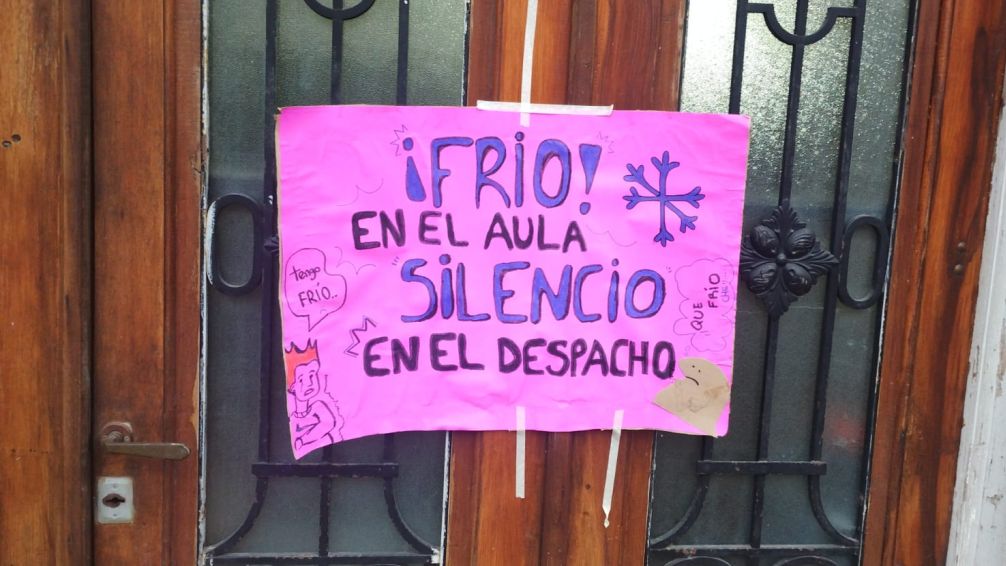 ¡FRIO!
EN EL AULA
"SILENCIO"
EN EL DESPACHO
tengo
FRÍO..
QUE
FRÍO
CHE!!